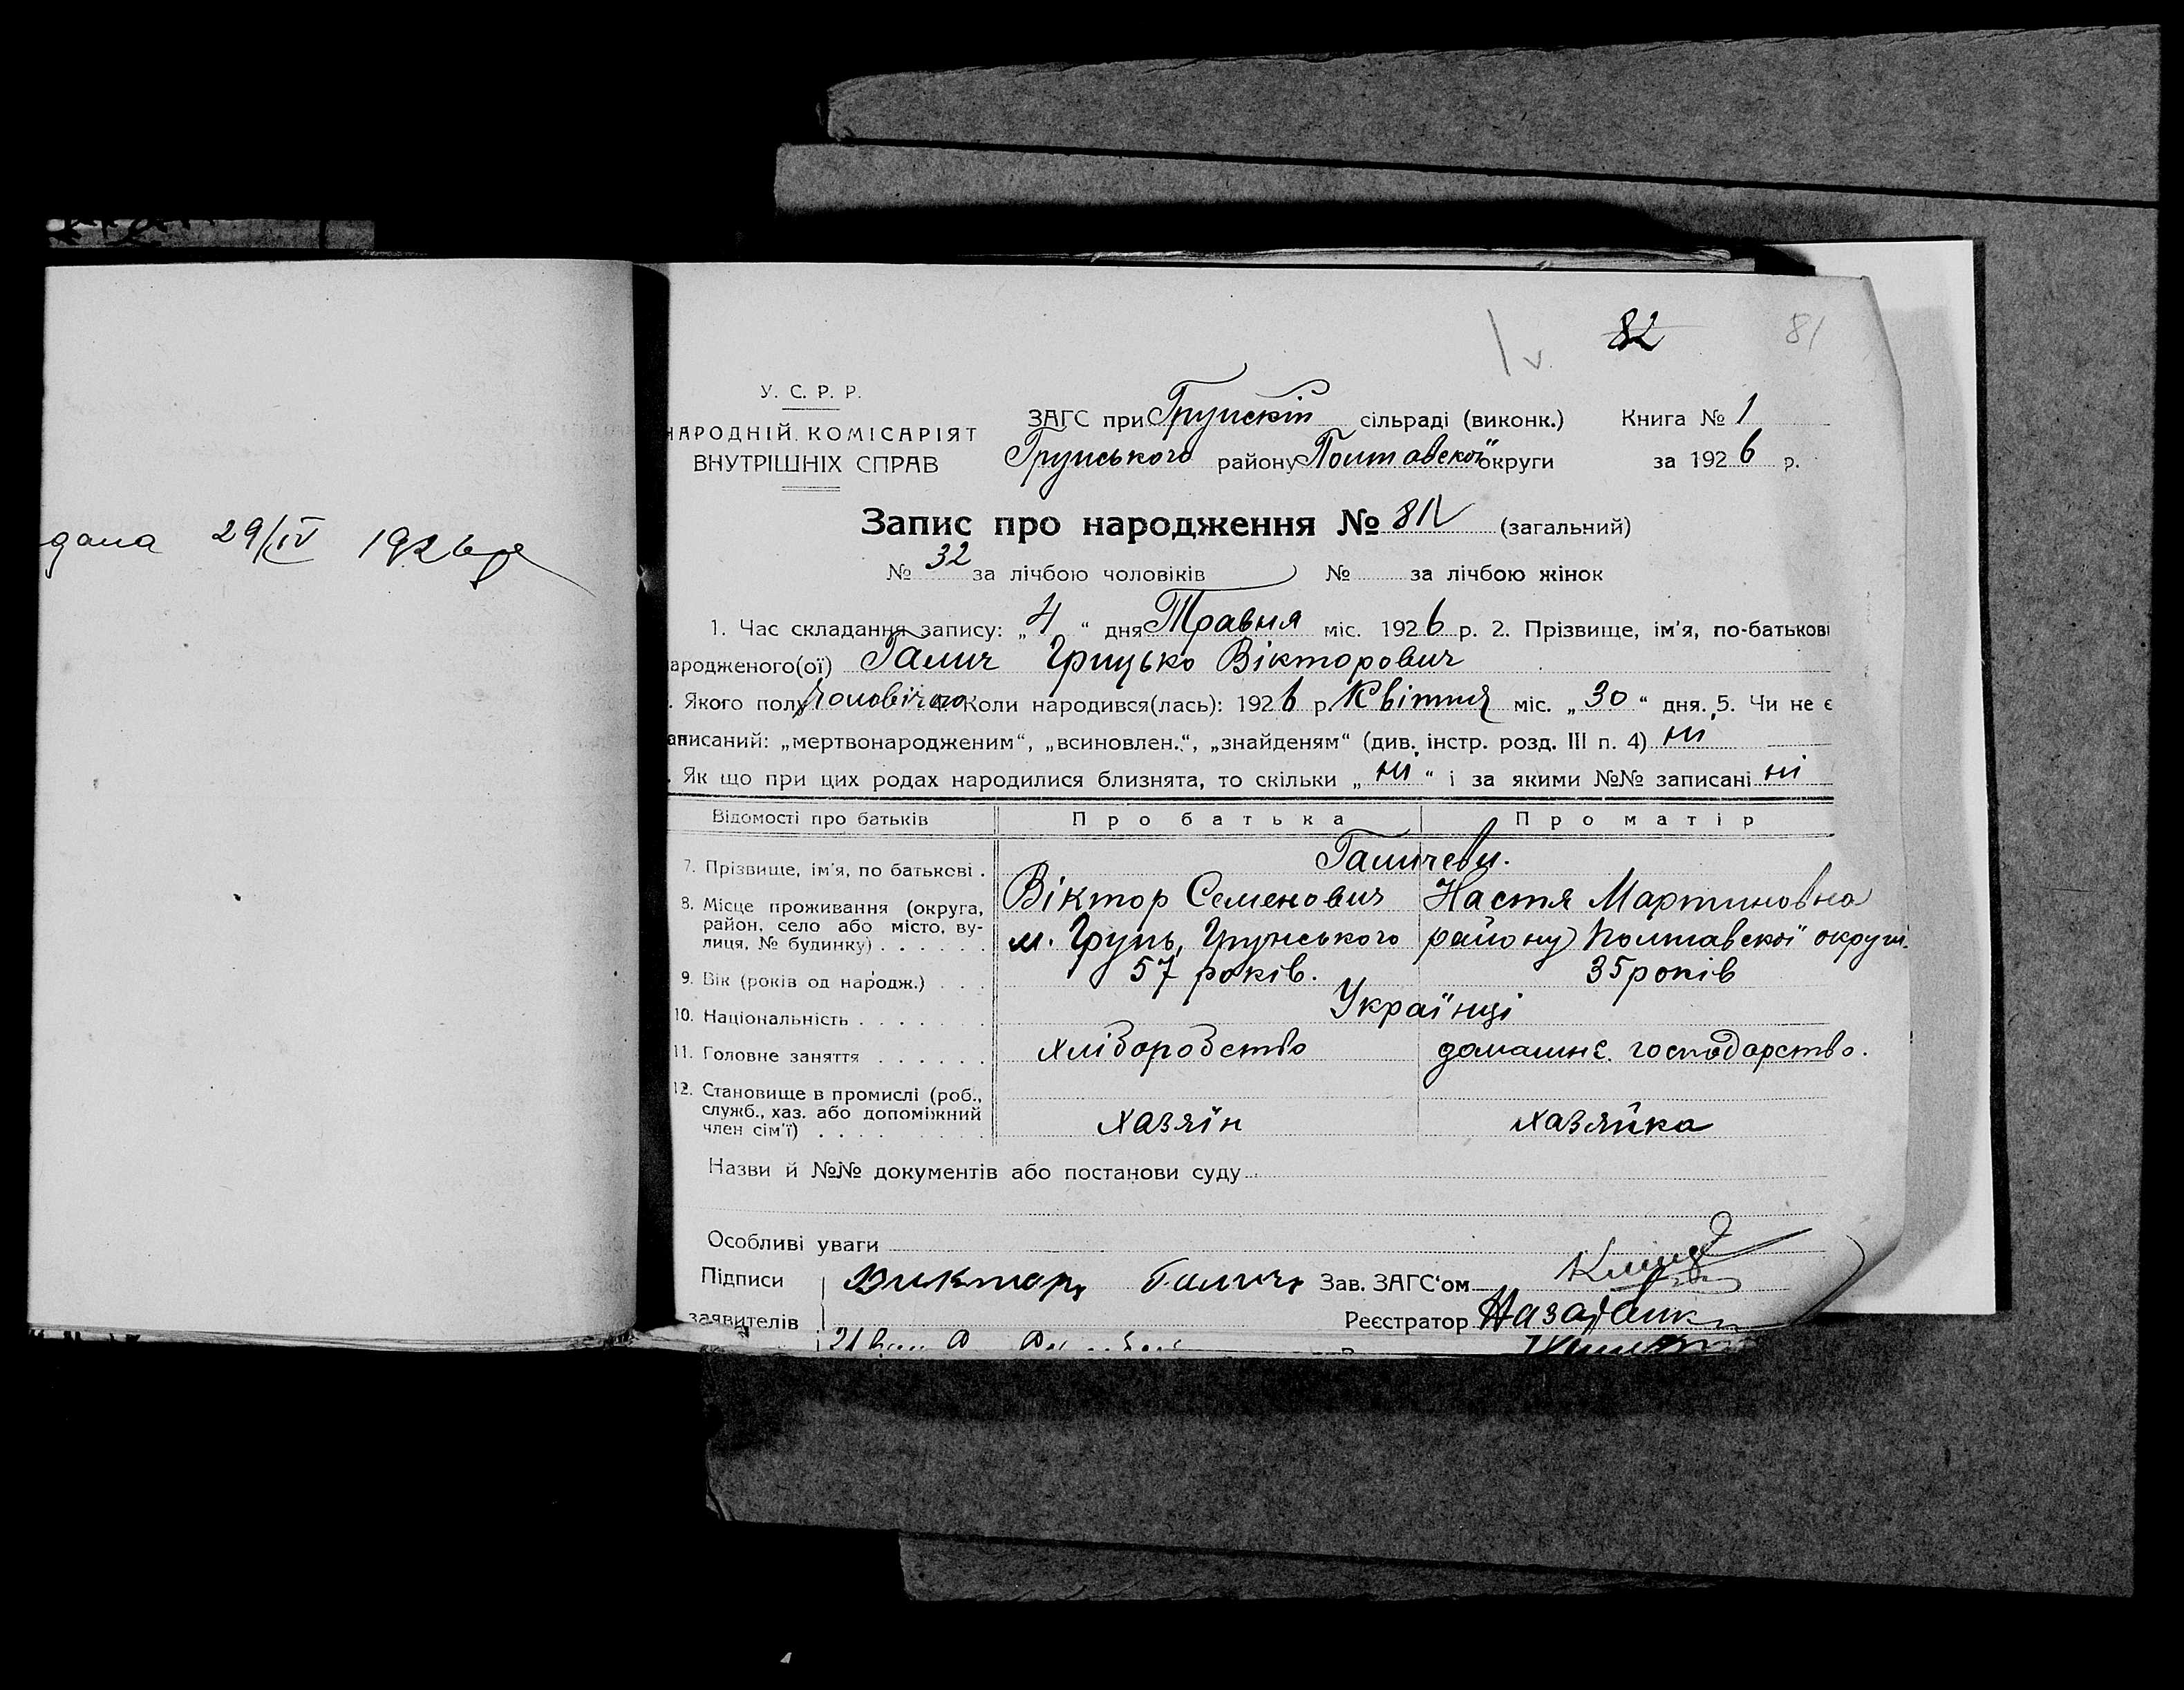 дана 29/IV 1926 р
82 81
У. С. Р. Р.
НАРОДНІЙ КОМІСАРІЯТ
ВНУТРІШНІХ СПРАВ
ЗАГС при Грунскій сільраді (виконк.) Книга № 1
Грунського району Полтавскої округи за 1926 р.
Запис про народження № 81 (загальний)
№ 32 за лічбою чоловіків № за лічбою жінок
1. Час складання запису: „4“ дня Травня міс. 1926 р. 2. Прізвище, ім'я, по-батькові
народженого(ої) Галич Грицько Вікторович
. Якого полу чоловічого 4. Коли народився(лась): 1926 р. Квітня міс. „30“ дня. 5. Чи не є
записаний: „мертвонародженим“, „всиновлен.“, „знайденям“ (див. інстр. розд. III п. 4) ні
. Як що при цих родах народилися близнята, то скільки „ні“ і за якими №№ записані ні
Відомості про батьків Про батька Про матір
7. Прізвище, ім'я, по батькові . Галичеви.
Віктор Семенович Настя Мартиновна
8. Місце проживання (округа, район, село або місто, вулиця, № будинку) . . . . . . м. Грунь, Грунського району Полтавскої округи.
9. Вік (років од народж.) . . . 57 років. 35 років
10. Національність . . . . . . . Українці
11. Головне заняття . . . . . . хліборобство домашнє господарство.
12. Становище в промислі (роб., служб., хаз. або допоміжний член сім'ї) . . . . . . . . . хазяїн хазяйка
Назви й №№ документів або постанови суду
Особливі уваги
Підписи Викторъ Галичъ Зав. ЗАГС'ом
заявителів Реєстратор